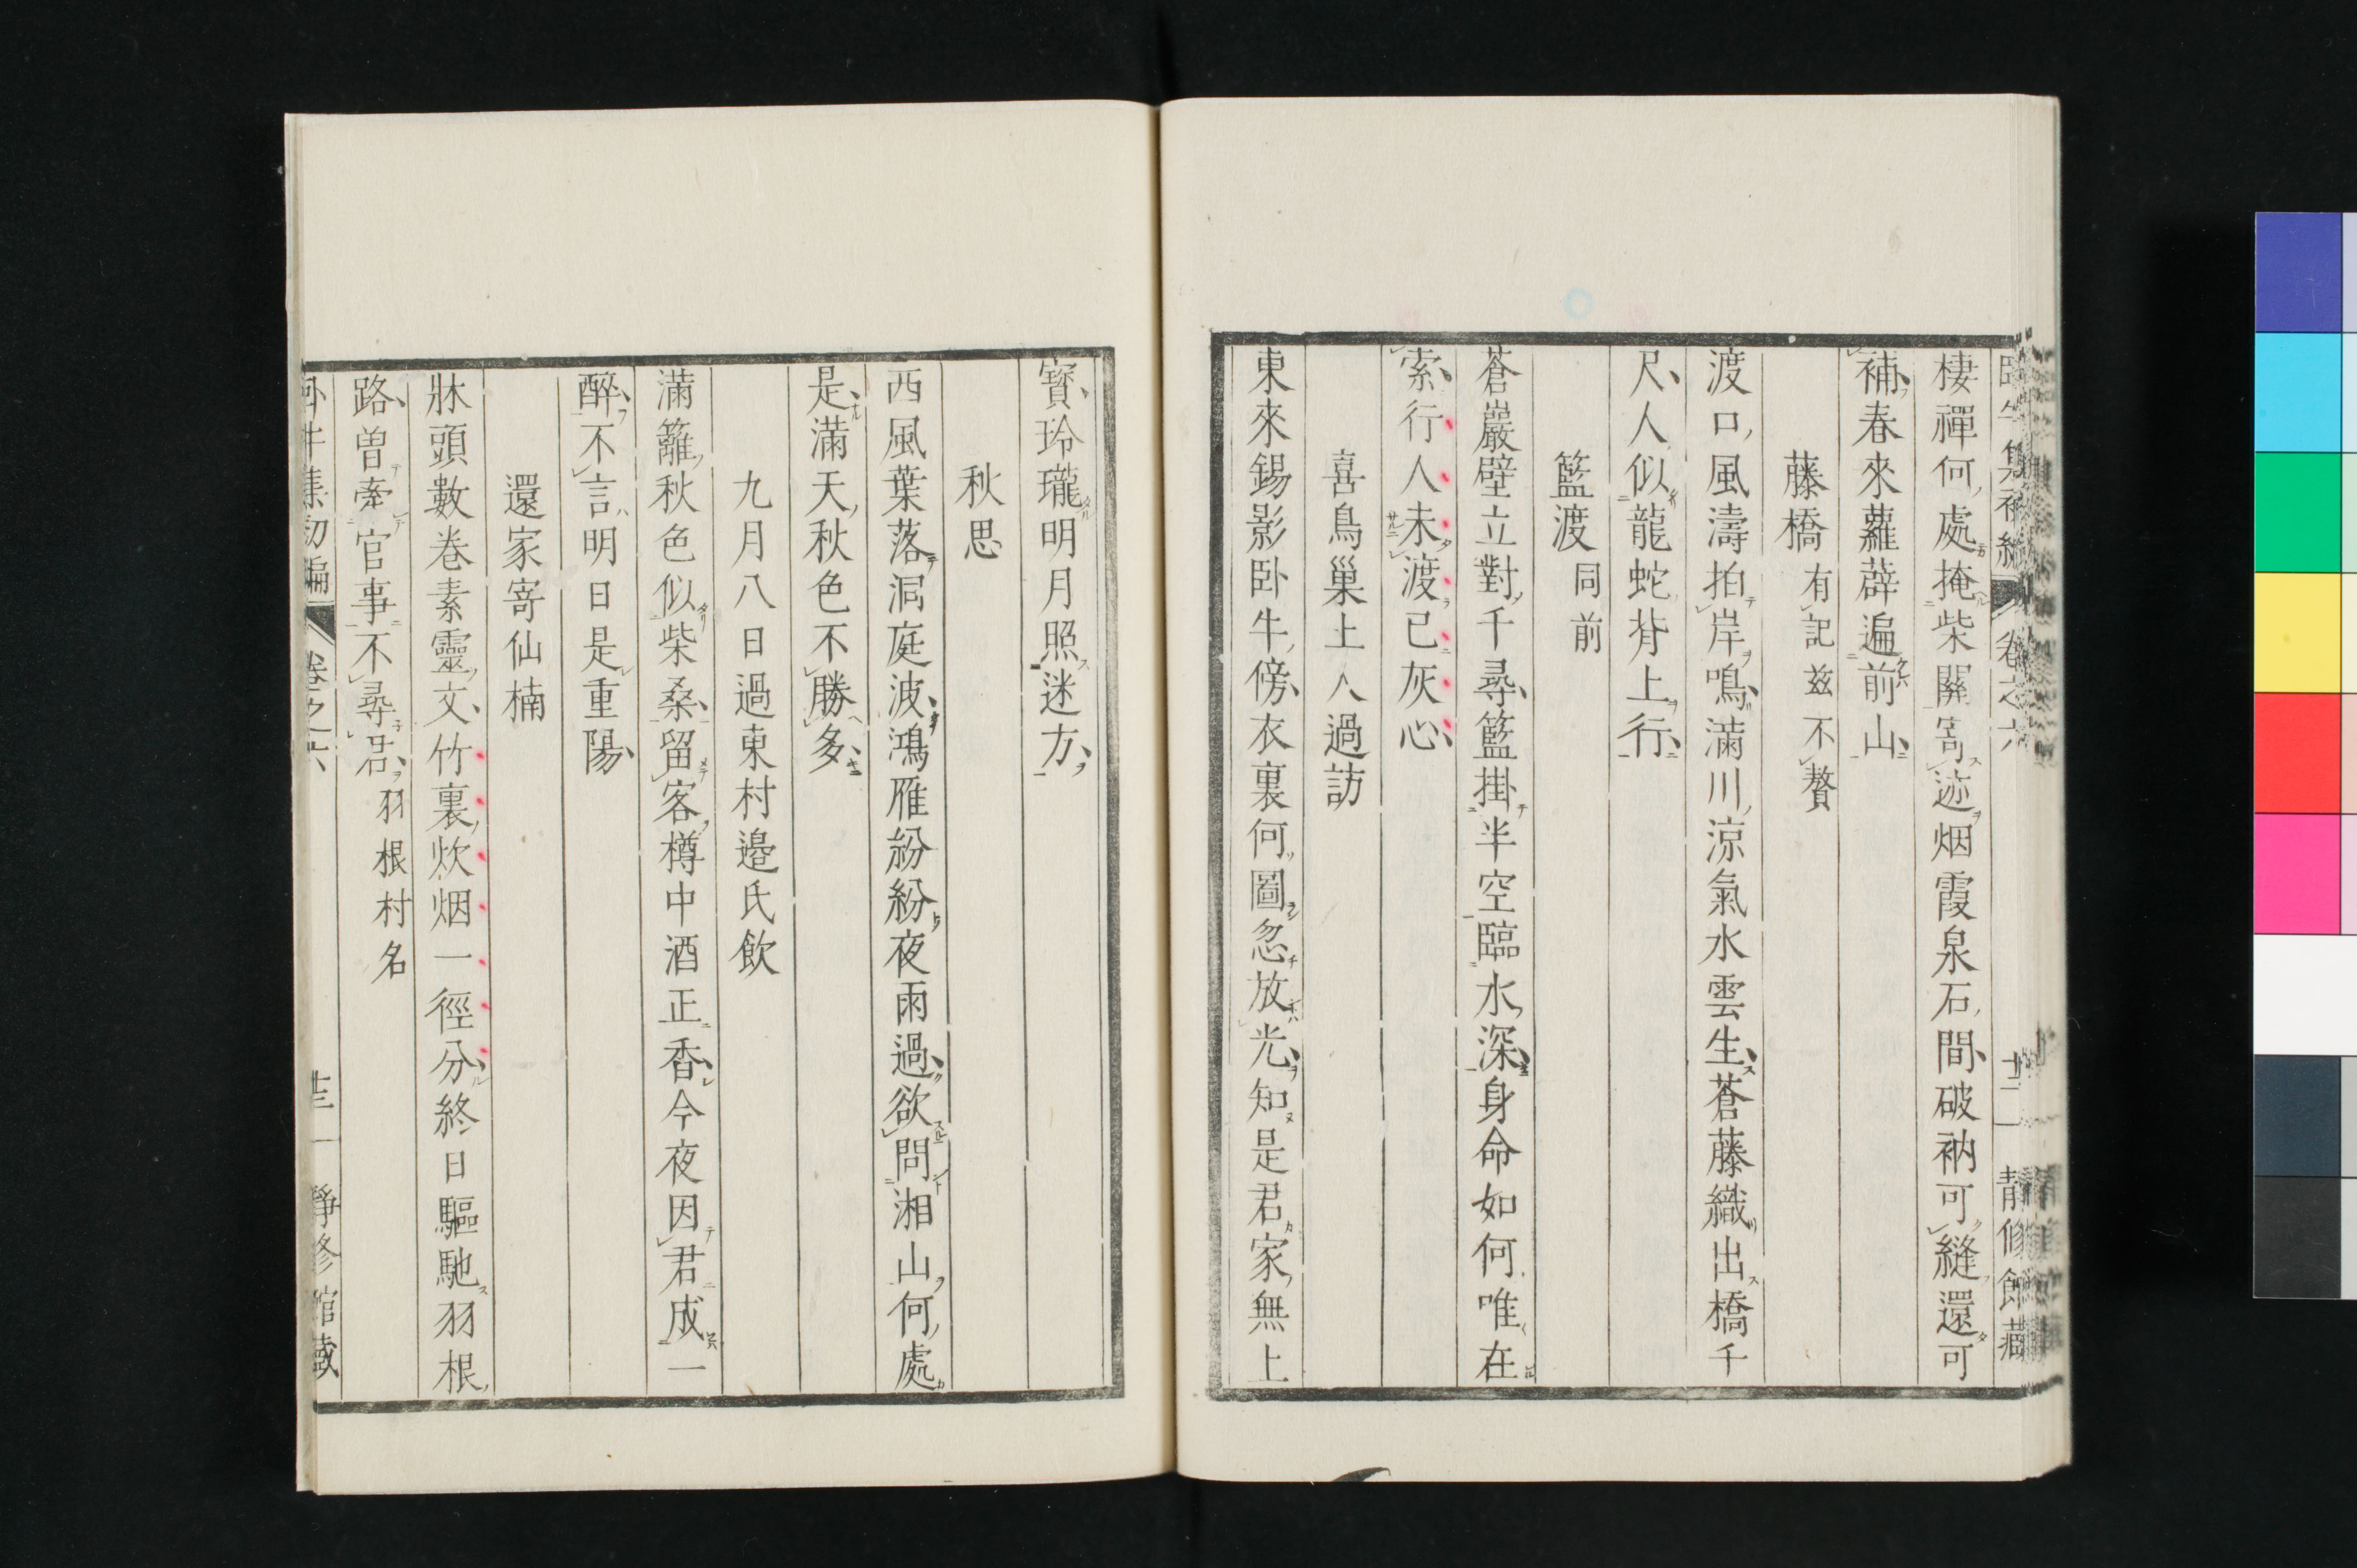 棲禪何處掩柴關寄迹烟霞泉石間破衲可縫還可
補春來蘿薜遍前山
藤橋 有記茲不贅
渡口風濤拍岸鳴滿川涼氣水雲生蒼藤織出橋千
尺人似龍蛇背上行
籃渡 同前
蒼巖壁立對千尋籃掛半空臨水深身命如何唯在
索行人未渡已灰心
喜鳥巢上人過訪
東來錫影卧牛傍衣裏何圖忽放光知是君家無上
寳玲瓏明月照迷方
秋思
西風葉落洞庭波鴻雁紛紛夜雨過欲問湘山何處
是滿天秋色不勝多
九月八日過東村邉氏飲
滿籬秋色似柴桑留客樽中酒正香今夜因君成一
醉不言明日是重陽
還家寄仙楠
牀頭數卷素靈文竹裏炊烟一徑分終日驅馳羽根
路曽牽官事不尋君 羽根村名
卷之六
十三 靜修館藏